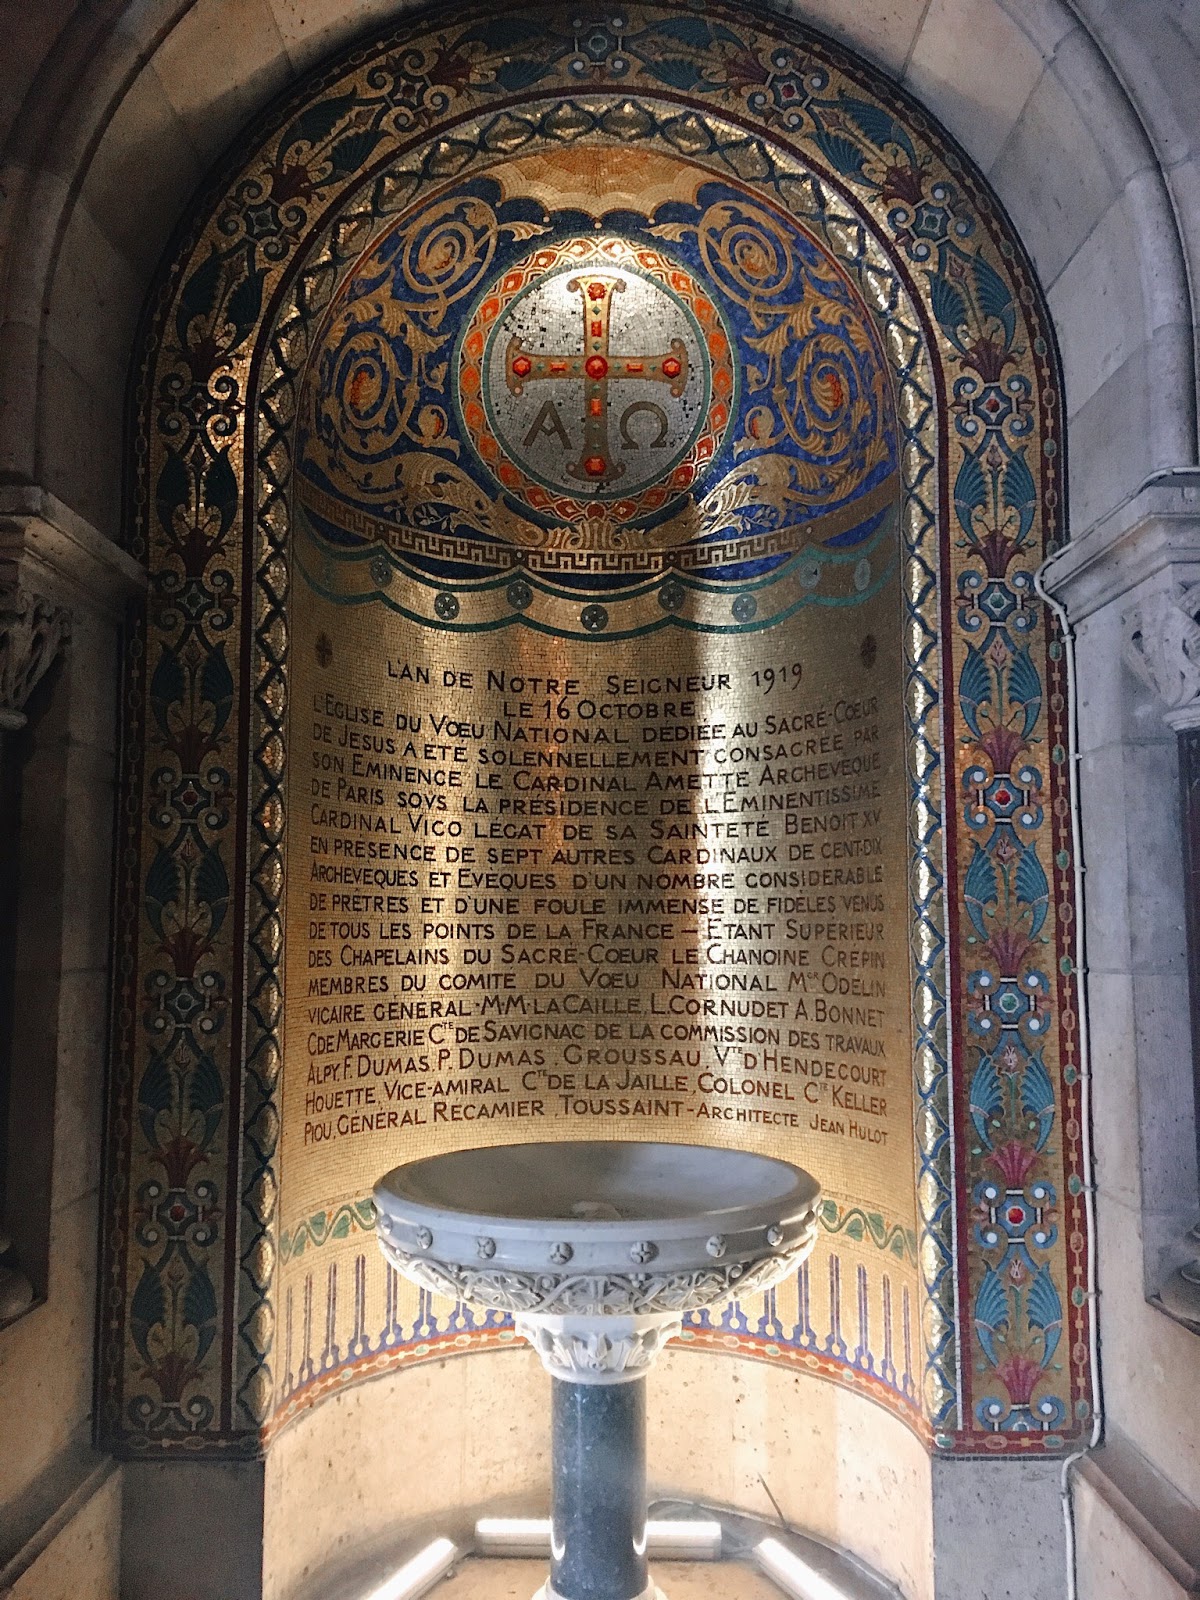 Α Ω
L'AN DE NOTRE SEIGNEUR 1919
LE 16 OCTOBRE
L'EGLISE DU VŒU NATIONAL DÉDIÉE AU SACRÉ-CŒUR
DE JESUS A ÉTÉ SOLENNELLEMENT CONSACRÉE PAR
SON EMINENCE LE CARDINAL AMETTE ARCHEVEQUE
DE PARIS SOVS LA PRÉSIDENCE DE L'EMINENTISSIME
CARDINAL VICO LÉGAT DE SA SAINTETÉ BENOIT XV
EN PRESENCE DE SEPT AUTRES CARDINAUX DE CENT-DIX
ARCHEVEQUES ET EVEQUES D'UN NOMBRE CONSIDERABLE
DE PRÊTRES ET D'UNE FOULE IMMENSE DE FIDÈLES VENUS
DE TOUS LES POINTS DE LA FRANCE – ETANT SUPERIEUR
DES CHAPELAINS DU SACRÉ-CŒUR LE CHANOINE CREPIN
MEMBRES DU COMITE DU VŒU NATIONAL MGR ODELIN
VICAIRE GÉNÉRAL - M.M. LA CAILLE, L. CORNUDET A. BONNET
C DE MARGERIE CTE DE SAVIGNAC DE LA COMMISSION DES TRAVAUX
ALPY, F. DUMAS, P. DUMAS, GROUSSAU, VTE D'HENDECOURT
HOUETTE, VICE-AMIRAL CTE DE LA JAILLE, COLONEL CTE KELLER
PIOU, GÉNÉRAL RECAMIER, TOUSSAINT - ARCHITECTE JEAN HULOT